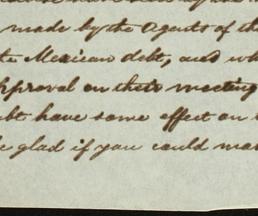 made by the Agents of the
Mexican debt, and wh
pproval on their meeting
bt have some effect on
e glad if you could ma